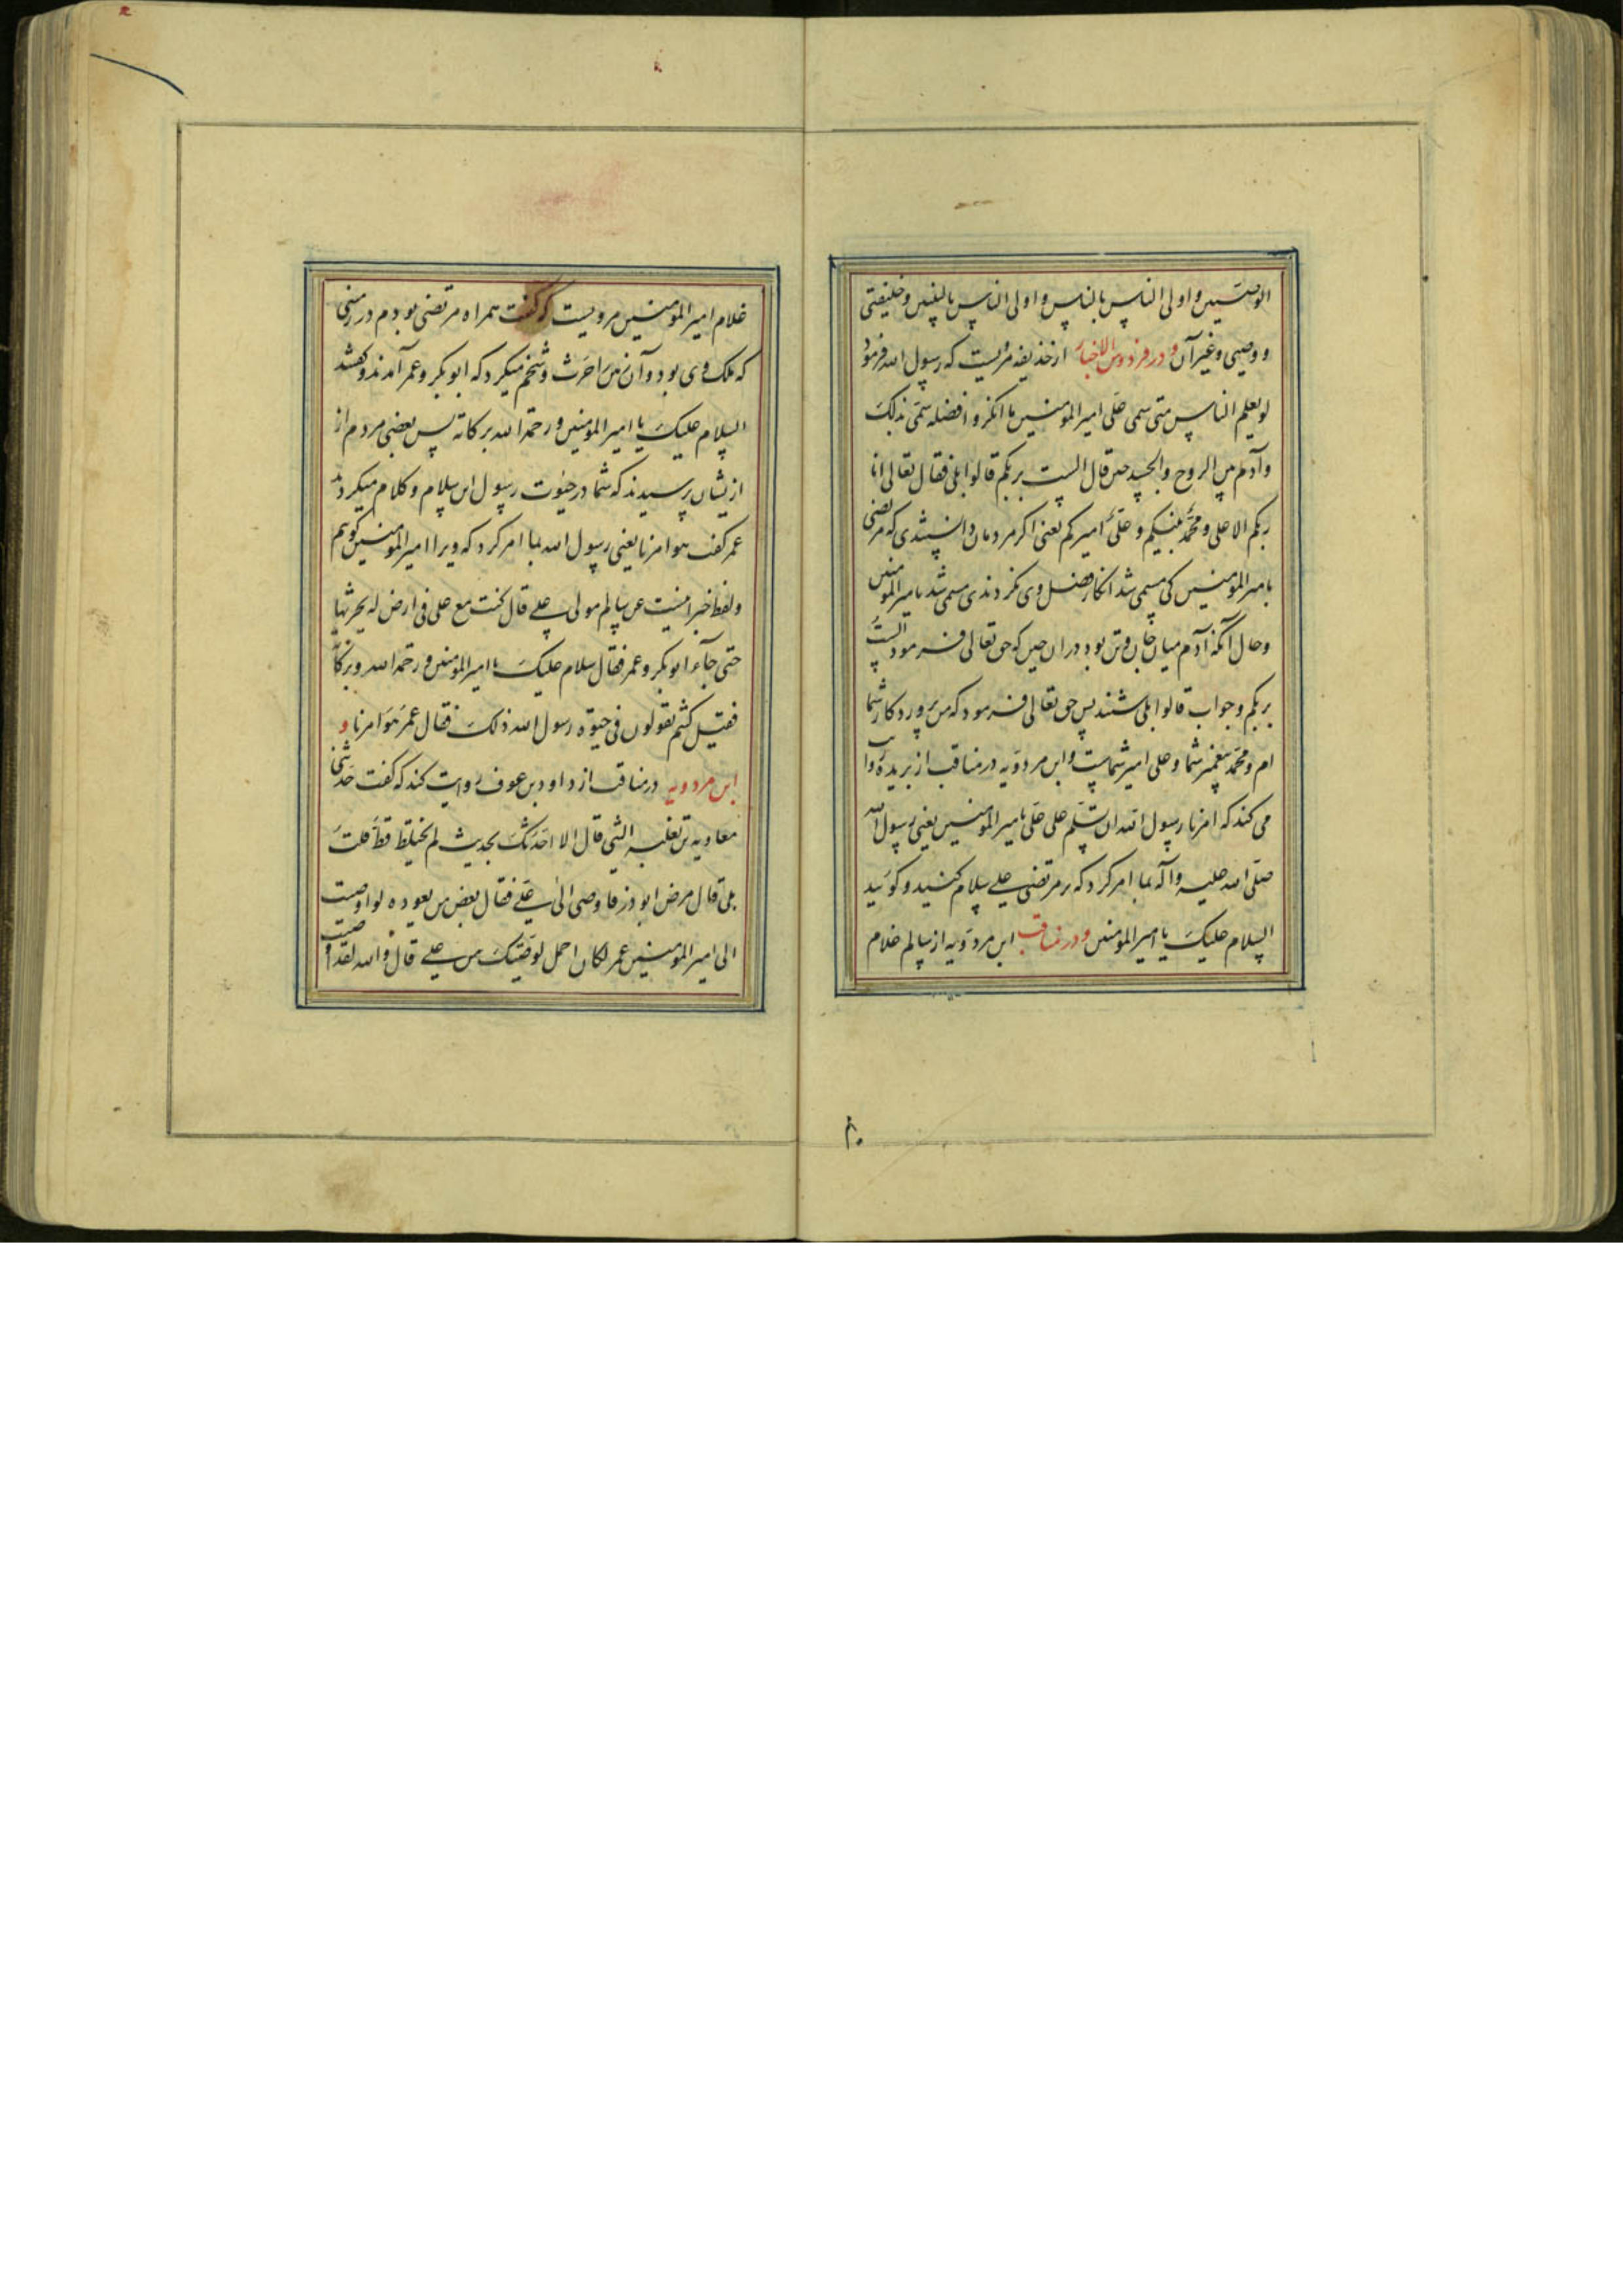 الوصیین و اولی الناس بالناس و اولی الناس بالنبیین و خلیفتی
و وصیی و غیر آن و در فردوس الاخبار از حذیفه مرویست که رسول الله فرمود
لو یعلم الناس متی سمی علی امیر المومنین ما انکروا فضله سمی بذلک
و آدم بین الروح و الجسد حین قال الست بربکم قالوا بلی فقال تعالی انا
ربکم الاعلی و محمد نبیکم و علی امیرکم یعنی اکر مردمان دانستندی که مرتضی
بامیر المومنین کی مسمی شد انکار فضل وی نکردندی مسمی شد بامیر المومنین
و حال آنکه آدم میان جان و تن بود در ان حین که حق تعالی فرمود الست
بربکم و جواب قالوا بلی شنید پس حق تعالی فرمود که من پروردکار شما
ام و محمد پیغمبر شما و علی امیر شماست و ابن مردویه در مناقب از بریده روایت
می کند که امرنا رسول الله ان نسلم علی علی بامیر المومنین یعنی رسول الله
صلی الله علیه و آله بما امر کرد که بر مرتضی علی سلام کنید و کویید
السلام علیک یا امیر المومنین و در مناقب ابن مردویه از سالم غلام
غلام امیر المومنین مرویست که کفت همراه مرتضی بودم در زمینی
که ملک وی بود و آن زمین را حرث و شخم میکرد که ابو بکر و عمر آمدند و کفتند
السلام علیک یا امیر المومنین و رحمة الله برکاته پس بعضی مردم از
ازیشان پرسیدند که شما در حیوت رسول این سلام و کلام میکردید
عمر کفت هو امرنا یعنی رسول الله بما امر کرد که ویرا امیر المومنین کوییم
و لفظ خبر اینست عن سالم مولی علی قال کنت مع علی فی ارض له یحرثها
حتی جآء ابو بکر و عمر فقال سلام علیک یا امیر المومنین و رحمة الله و برکاته
فقیل کنتم تقولون فی حیوة رسول الله ذلک فقال عمر هو امرنا و
ابن مردویه در مناقب از داود بن عوف روایت کند که کفت حدثنی
معاویه بن ثعلبه اللیثی قال الا احدثک بحدیث لم یختلط قط قلت
بلی قال مرض ابو ذر فاوصی الی علی فقال بعض من یعوده لو اوصیت
الی امیر المومنین عمر لکان اجمل لوصیتک من علی قال والله لقد اوصیت